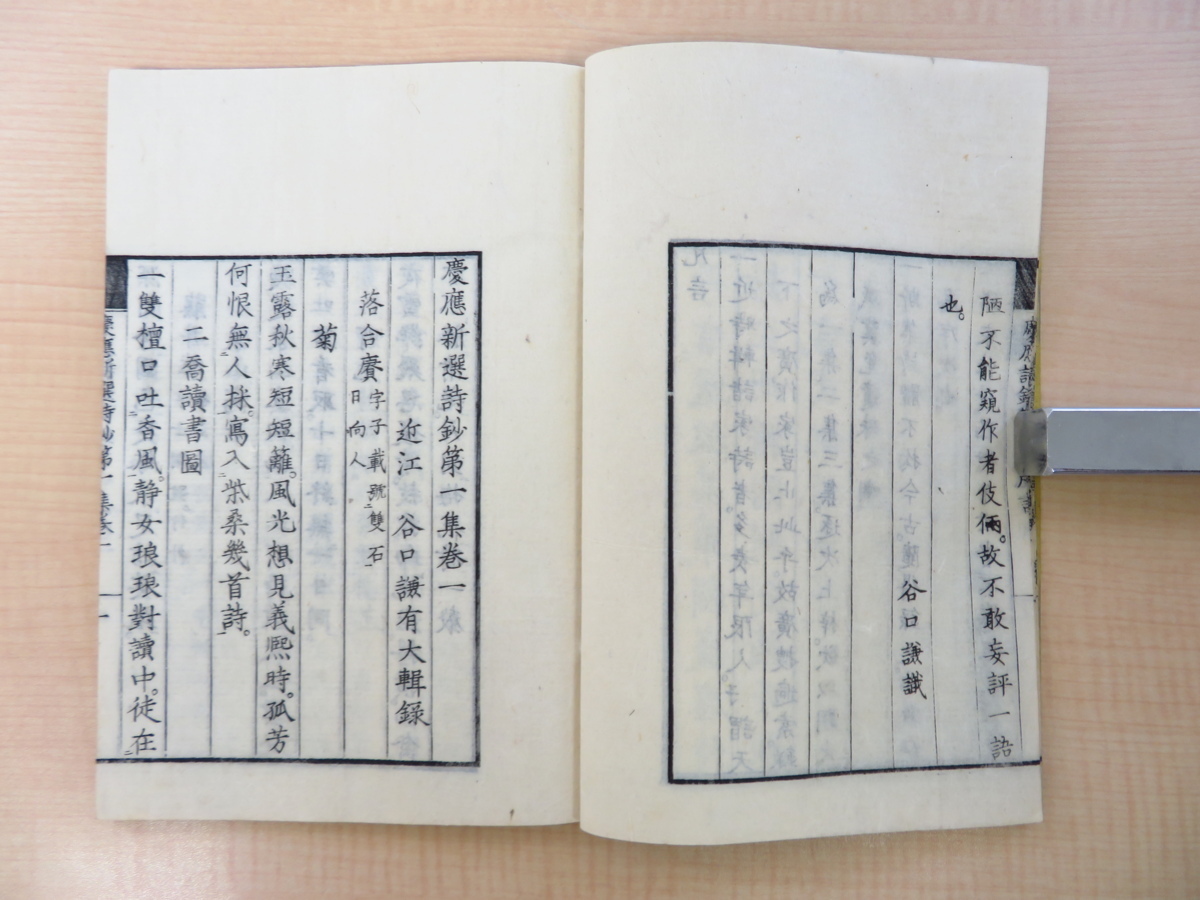 陋不能窺作者伎倆。故不敢妄評一語
也。
谷口謙識
慶應新選詩鈔第一集卷一
近江 谷口謙有大輯錄
落合賡 字子載號雙石
日向人。
菊
玉露秋寒短短籬。風光想見義熙時。孤芳
何恨無人採。寫入柴桑幾首詩。
二喬讀書圖
一雙檀口吐香風。靜女琅琅對讀中。徒在
慶應新選詩鈔第一集卷一 一